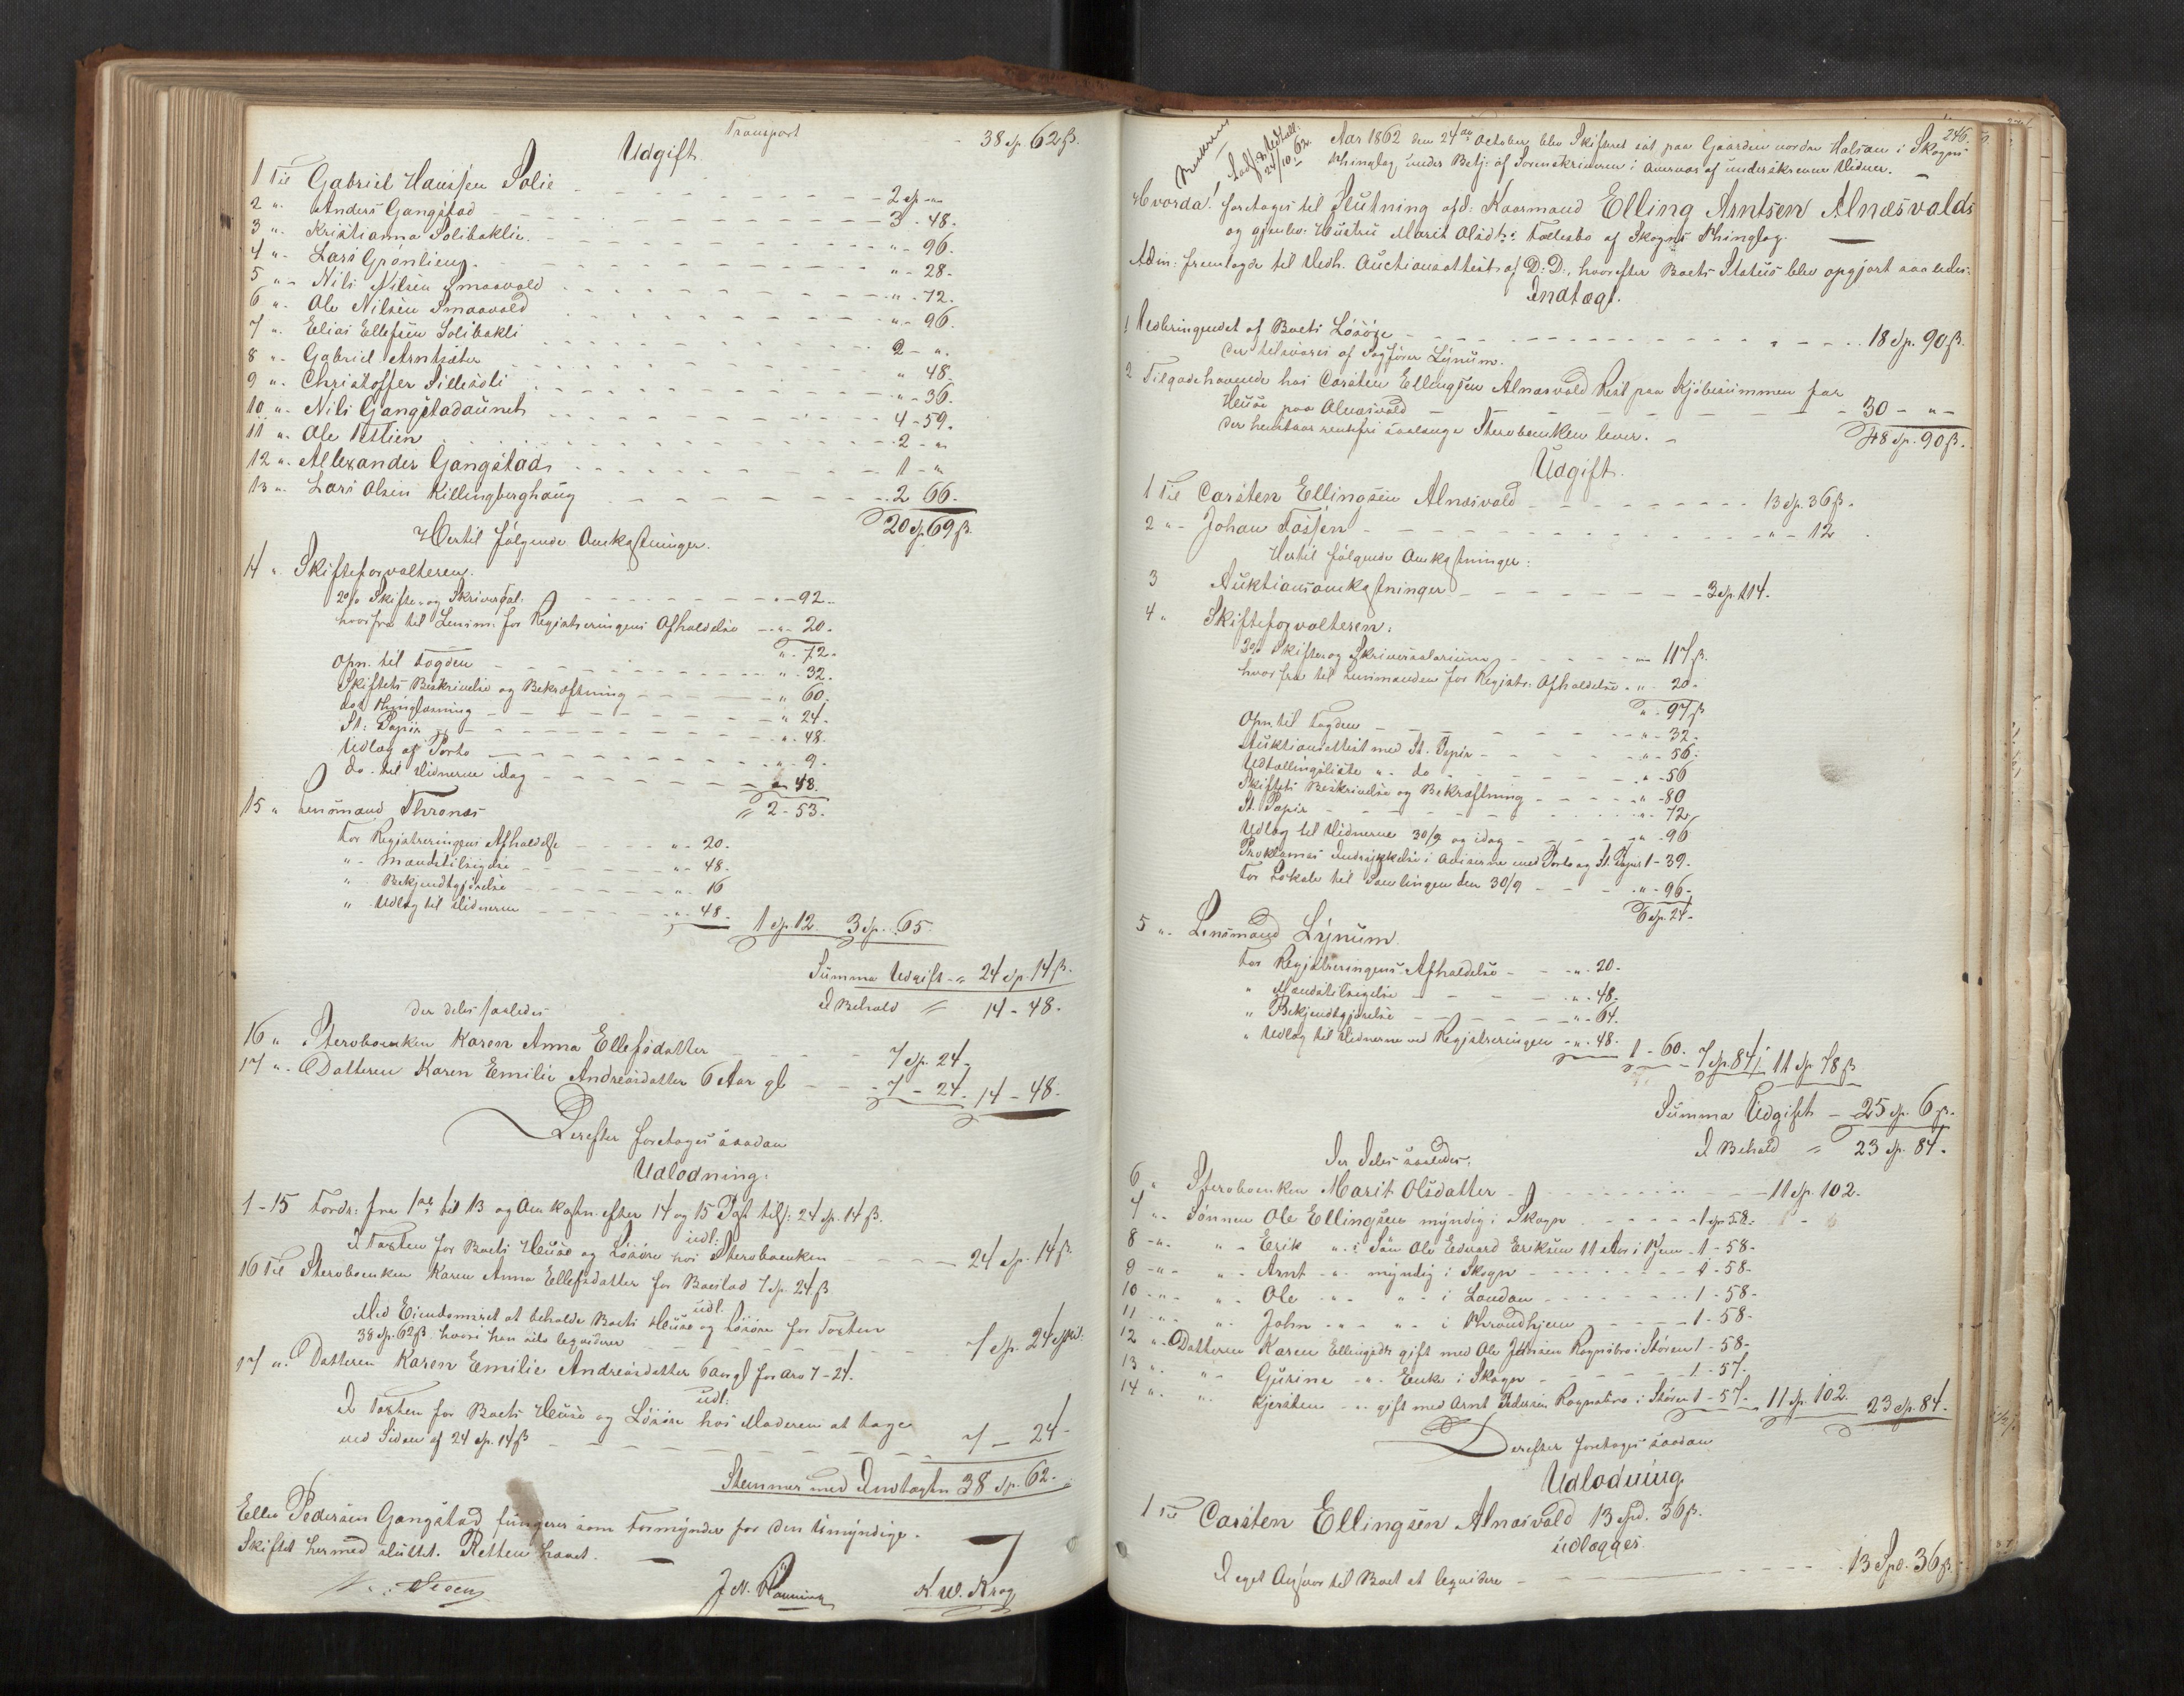 Transport 38 Sp. 62 ß.
Udgift.
1 Til Gabriel Hansen Solie - 2 Sp - " -
2 " Anders Gangstad - 3 - 48.
3 " Kristianna Solibaklie - " - 96.
4 " Lars Grønlieng - " - 28.
5 " Nils Nilsen Smaavold - " - 72.
6 " Ole Nilsen Smaavold - " - 96.
7 " Elias Ellefsen Solibakli - 2 - ".
8 " Gabriel Arntsæter - " 48.
9 " Christoffer Sillisoli - " - 36.
10 " Nils Gangstadaunet - 4 - 59.
11 " Ole Tillien - 2 - "
12 " Allexander Gangstad - 1 - "
13 " Lars Olsen Killingberghaug - 2 66.
20 Sp. 69 ß.
Hertil følgende Omkostninger.
14 " Skifteforvalteren.
2% Skifte- og Skriversal: - " - 92.
hvorfra til Lensm: for Registreringens Afholdelse - " - 20.
" - 72.
Opn. til Fogden - " - 32.
Skiftets Beskrivelse og Bekræftning - " 60.
dets Thinglæsning - " 24.
St: Papir - " - 48.
Udlæg af Porto - " - 9.
do. til Vidnerne idag - " 48.
2 - 53.
15 " Lensmand Thrones
For Registreringens Afholdelse - " - 20.
" - Mandstilsigelse - " - 48.
" Bekjendtgjørelse - " - 16
" Udlæg til Vidnerne - " - 48.
1 Sp. 12. 3 Sp. 65.
Summa Udgift = 24 Sp. 14 ß.
I Behold = 14 - 48.
der deles saaledes
16 " Sterboenken Karen Anna Ellefsdatter 7 Sp. 24.
17 " Datteren Karen Emilie Andreasdatter 6 Aar gl - 7 - 24. 14 - 48.
Derefter foretoges saadan
Udlodning:
1-15 Fordr: fra 1 til 13 og Omkostn. efter 14 og 15 Post tils: 24 Sp. 14 ß.
udl:
I Taxten for Boets Huse og Løsøre hos Sterboenken - 24 Sp. 14 ß.
16 Til Sterboenken Karen Anna Ellefsdatter for Boeslod 7 Sp. 24 ß
udl.
Med Eiendomsret at beholde Boets Huse og Løsøre for Taxten
38 Sp. 62 ß hvori hun selv leqviderer - 7 Sp. 24 Skil:
17 " Datteren Karen Emilie Andreasdatter 6 Aar gl for Arv 7 - 24.
udl:
I Taxten for Boets Huse og Løsøre hos Moderen at tage
ved Siden af 24 Sp. 14 ß - 7 - 24 -
Stemmer med Indtægten 38 Sp. 62.
Ellev Pedersen Gangstad fungerer som Formynder for den Umyndige.
Skiftet hermed sluttet. Retten hævet.
K. W. Krog
246.
24/10 62.
Aar 1862 den 24de October blev Skifteret sat paa Gaarden nordre Halsan i Skogns
Thinglag under Betj: af Sorenskriveren i Overvær af underskrevne Vidner.
Hvorda! foretoges til Slutning afd: Kaarmand Elling Arntsen Alnæsvalds
og gjenlev: Hustru Marit Olsdtrs Fællesbo af Skogns Thinglag.
Adm: fremlagde til Vedh. Auctionsattest af D: D:, hvorefter Boets Status blev opgjort saaledes:
Indtægt.
1 Udbringendet af Boets Løsøre - 18 Sp. 90 ß.
der tilsvares af Sagfører Lynum.
2 Tilgodehavende hos Carsten Ellingsen Alnæsvold Rest paa Kjøbesummen for
Huse paa Alnæsvold - 30 - " -
der henstaar rentefri saalænge Sterboenken lever. 48 Sp. 90 ß.
Udgift.
1 Til Carsten Ellingsen Alnæsvold - 13 Sp. 36 ß.
2 " - Johan Fossen - " - 12.
Hertil følgende Omkostninger:
3 Auktionsomkostninger - 3 Sp. 114.
4 " Skifteforvalteren:
3% Skifte- og Skriversalarium - 117 ß.
hvorfra til Lensmanden for Registr: Afholdelse - " 20.
" - 97 ß
Opn. til Fogden - " - 32.
Auktionsattest med St. Papir - " - 56.
Udtællingsliste " - do - " - 56
Skiftets Beskrivelse og Bekræftning - " - 80
St. Papir - " - 72.
Udlæg til Vidnerne 30/9 og idag - " - 96
Proklamas Indrykkelse i Aviserne med Porto og St. Papir 1 - 39.
For Lokale til Samlingen den 30/9 - " - 96.
6 Sp. 24.
5 " Lensmand Lynum.
For Registreringens Afholdelse - " - 20.
" Mandstilsigelse - " - 48.
" Bekjendtgjørelse - " - 64.
" Udlæg til Vidnerne ved Registreringen - " - 48.
1 - 60. 7 Sp. 84 11 Sp. 78 ß
Summa Udgift - 25 Sp. 6 ß.
I Behold = 23 Sp. 84.
der deles saaledes:
6 " Sterboenken Marit Olsdatter - 11 Sp. 102.
7 " Sønnen Ole Ellingsen myndig i Skogn - 1 Sp 58.
8 " " - Erik " : Søn Ole Edvard Eriksen 11 Aar i - 1 - 58 -
9 " " - Arnt " myndig i Skogn - 1 - 58 -
10 " " - Ole " " i London - 1 - 58 -
11 " " John " " i Throndhjem - 1 - 58 -
12 " Datteren Karen Ellingsdtr gift med Ole Jensen Rognsbro i Støren 1 - 58 -
13 " " Gurine " Enke i Skogn - 1 - 57.
14 " " Kjersten " gift med Arnt Pedersen Rognsbro i Støren 1 - 57. 11 Sp. 102. 23 Sp. 84.
Derefter foretoges saadan
Udlodning
1 Til Carsten Ellingsen Alnæsvold 13 Spd. 36 ß.
udlægges
I eget Ansvar til Boet at leqvidere - 13 Spd. 36 ß.